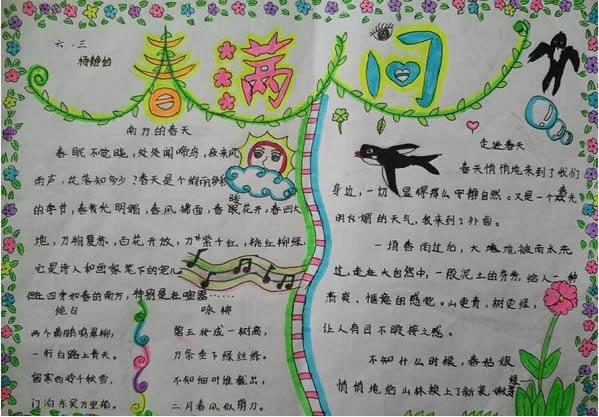 六.三
春满园
南方的春天
春眠不觉晓，处处闻啼鸟，夜来风
雨声，花落知多少？春天是个绚丽多
的季节，春黄光明媚，春风拂面，春暖花开，春回大
地，万物复苏，百花开放，万紫千红，桃红柳绿，
它是诗人和画家笔下的宠儿
但在四季如春的南方，特别是在
暖
绝句
两个黄鹂鸣翠柳，
一行白路上青天。
窗寒西岭千秋雪，
门泊东吴万里船
咏柳
碧玉妆成一树高，
万条垂下绿丝绦。
不知细叶谁裁出，
二月春风似剪刀。
走进春天
春天悄悄地来到了我们
身边，一切显得那么安排自然。又是一个
明媚的天气，我来到了外面。
一场春雨过后，大地被雨水洗
过，走在大自然中，一股泥土的芳香，给人一种
清爽、惬意的感觉。山更青，树更绿，
让人有目不暇接之感。
不知什么时候，春姑娘
悄悄地给山林换上了新装